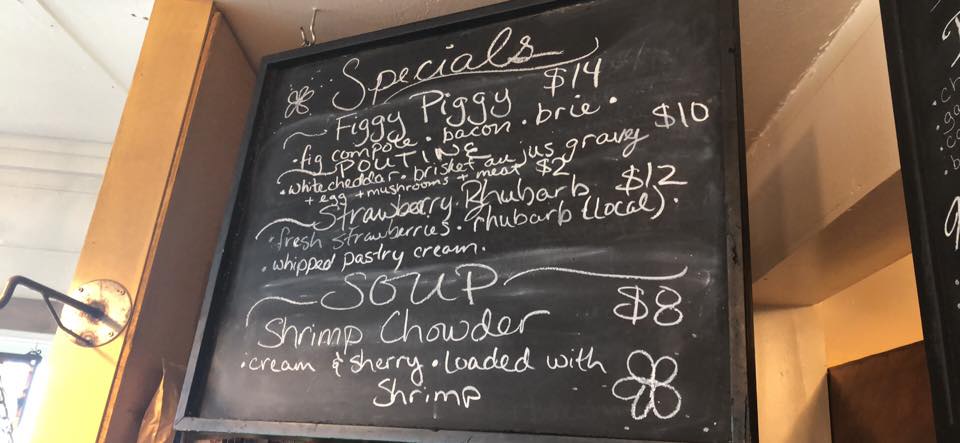 Specials
Figgy Piggy $14
• fig compote • bacon • brie •
POUTINE $10
• white cheddar • brisket au jus gravey
+ egg + mushrooms + meat $2
Strawberry Rhubarb $12
• fresh strawberries • rhubarb (local) •
• whipped pastry cream.
SOUP
Shrimp Chowder $8
• cream & sherry • loaded with
Shrimp